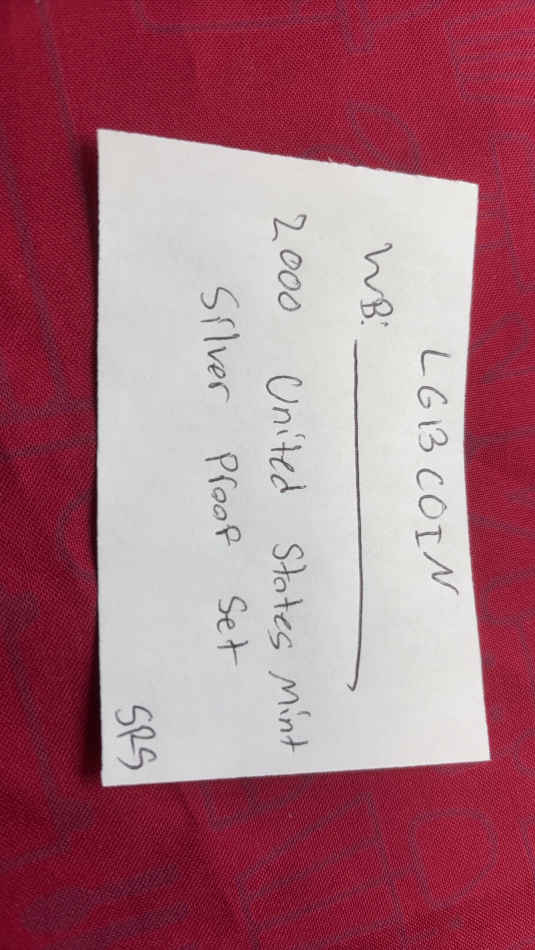 LGBCOIN
WB:
2000 United States Mint
Silver Proof Set
SPS